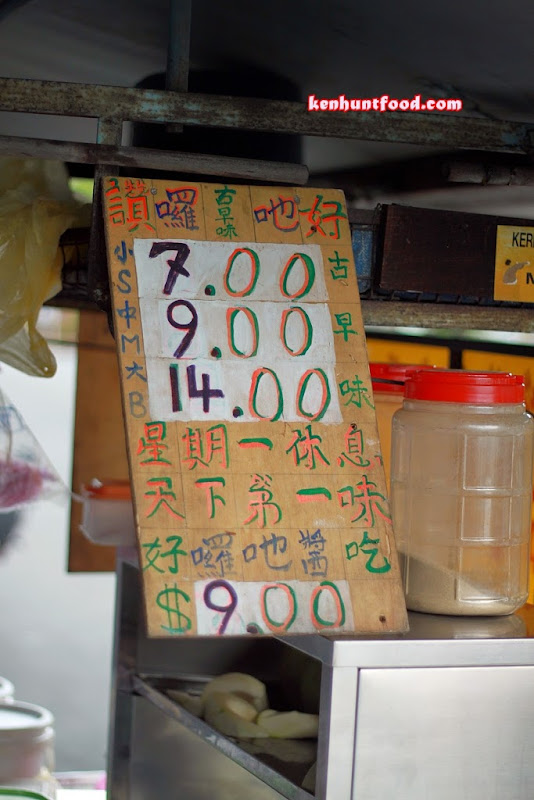 kenhuntfood.com
讚囉古早味吔好
小S 7.00 古
中M 9.00 早
大B 14.00 味
星期一休息
天下第一味
好囉吔醬吃
$9.00
KER